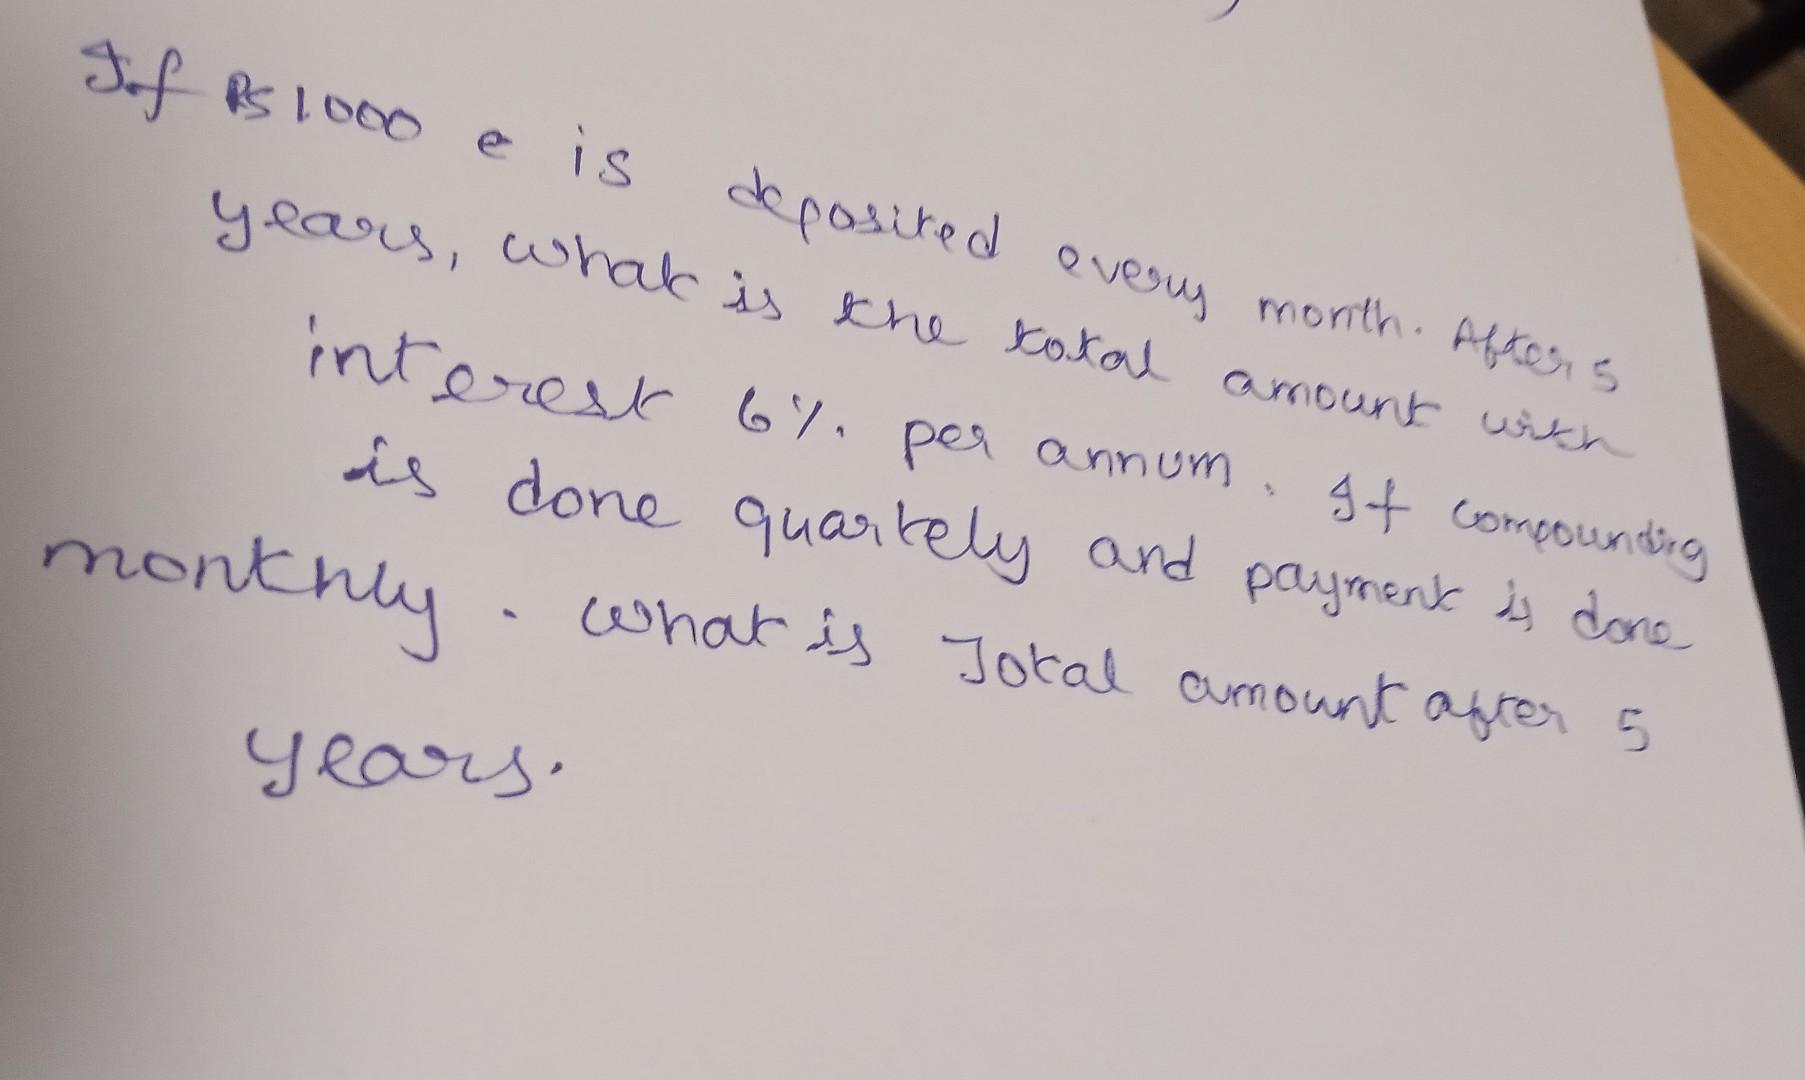 If Rs 1000 e is deposited every month. After 5
years, what is the total amount with
interest 6%. per annum. If compounding
is done quartely and payment is done
monthly. What is Total amount after 5
years.